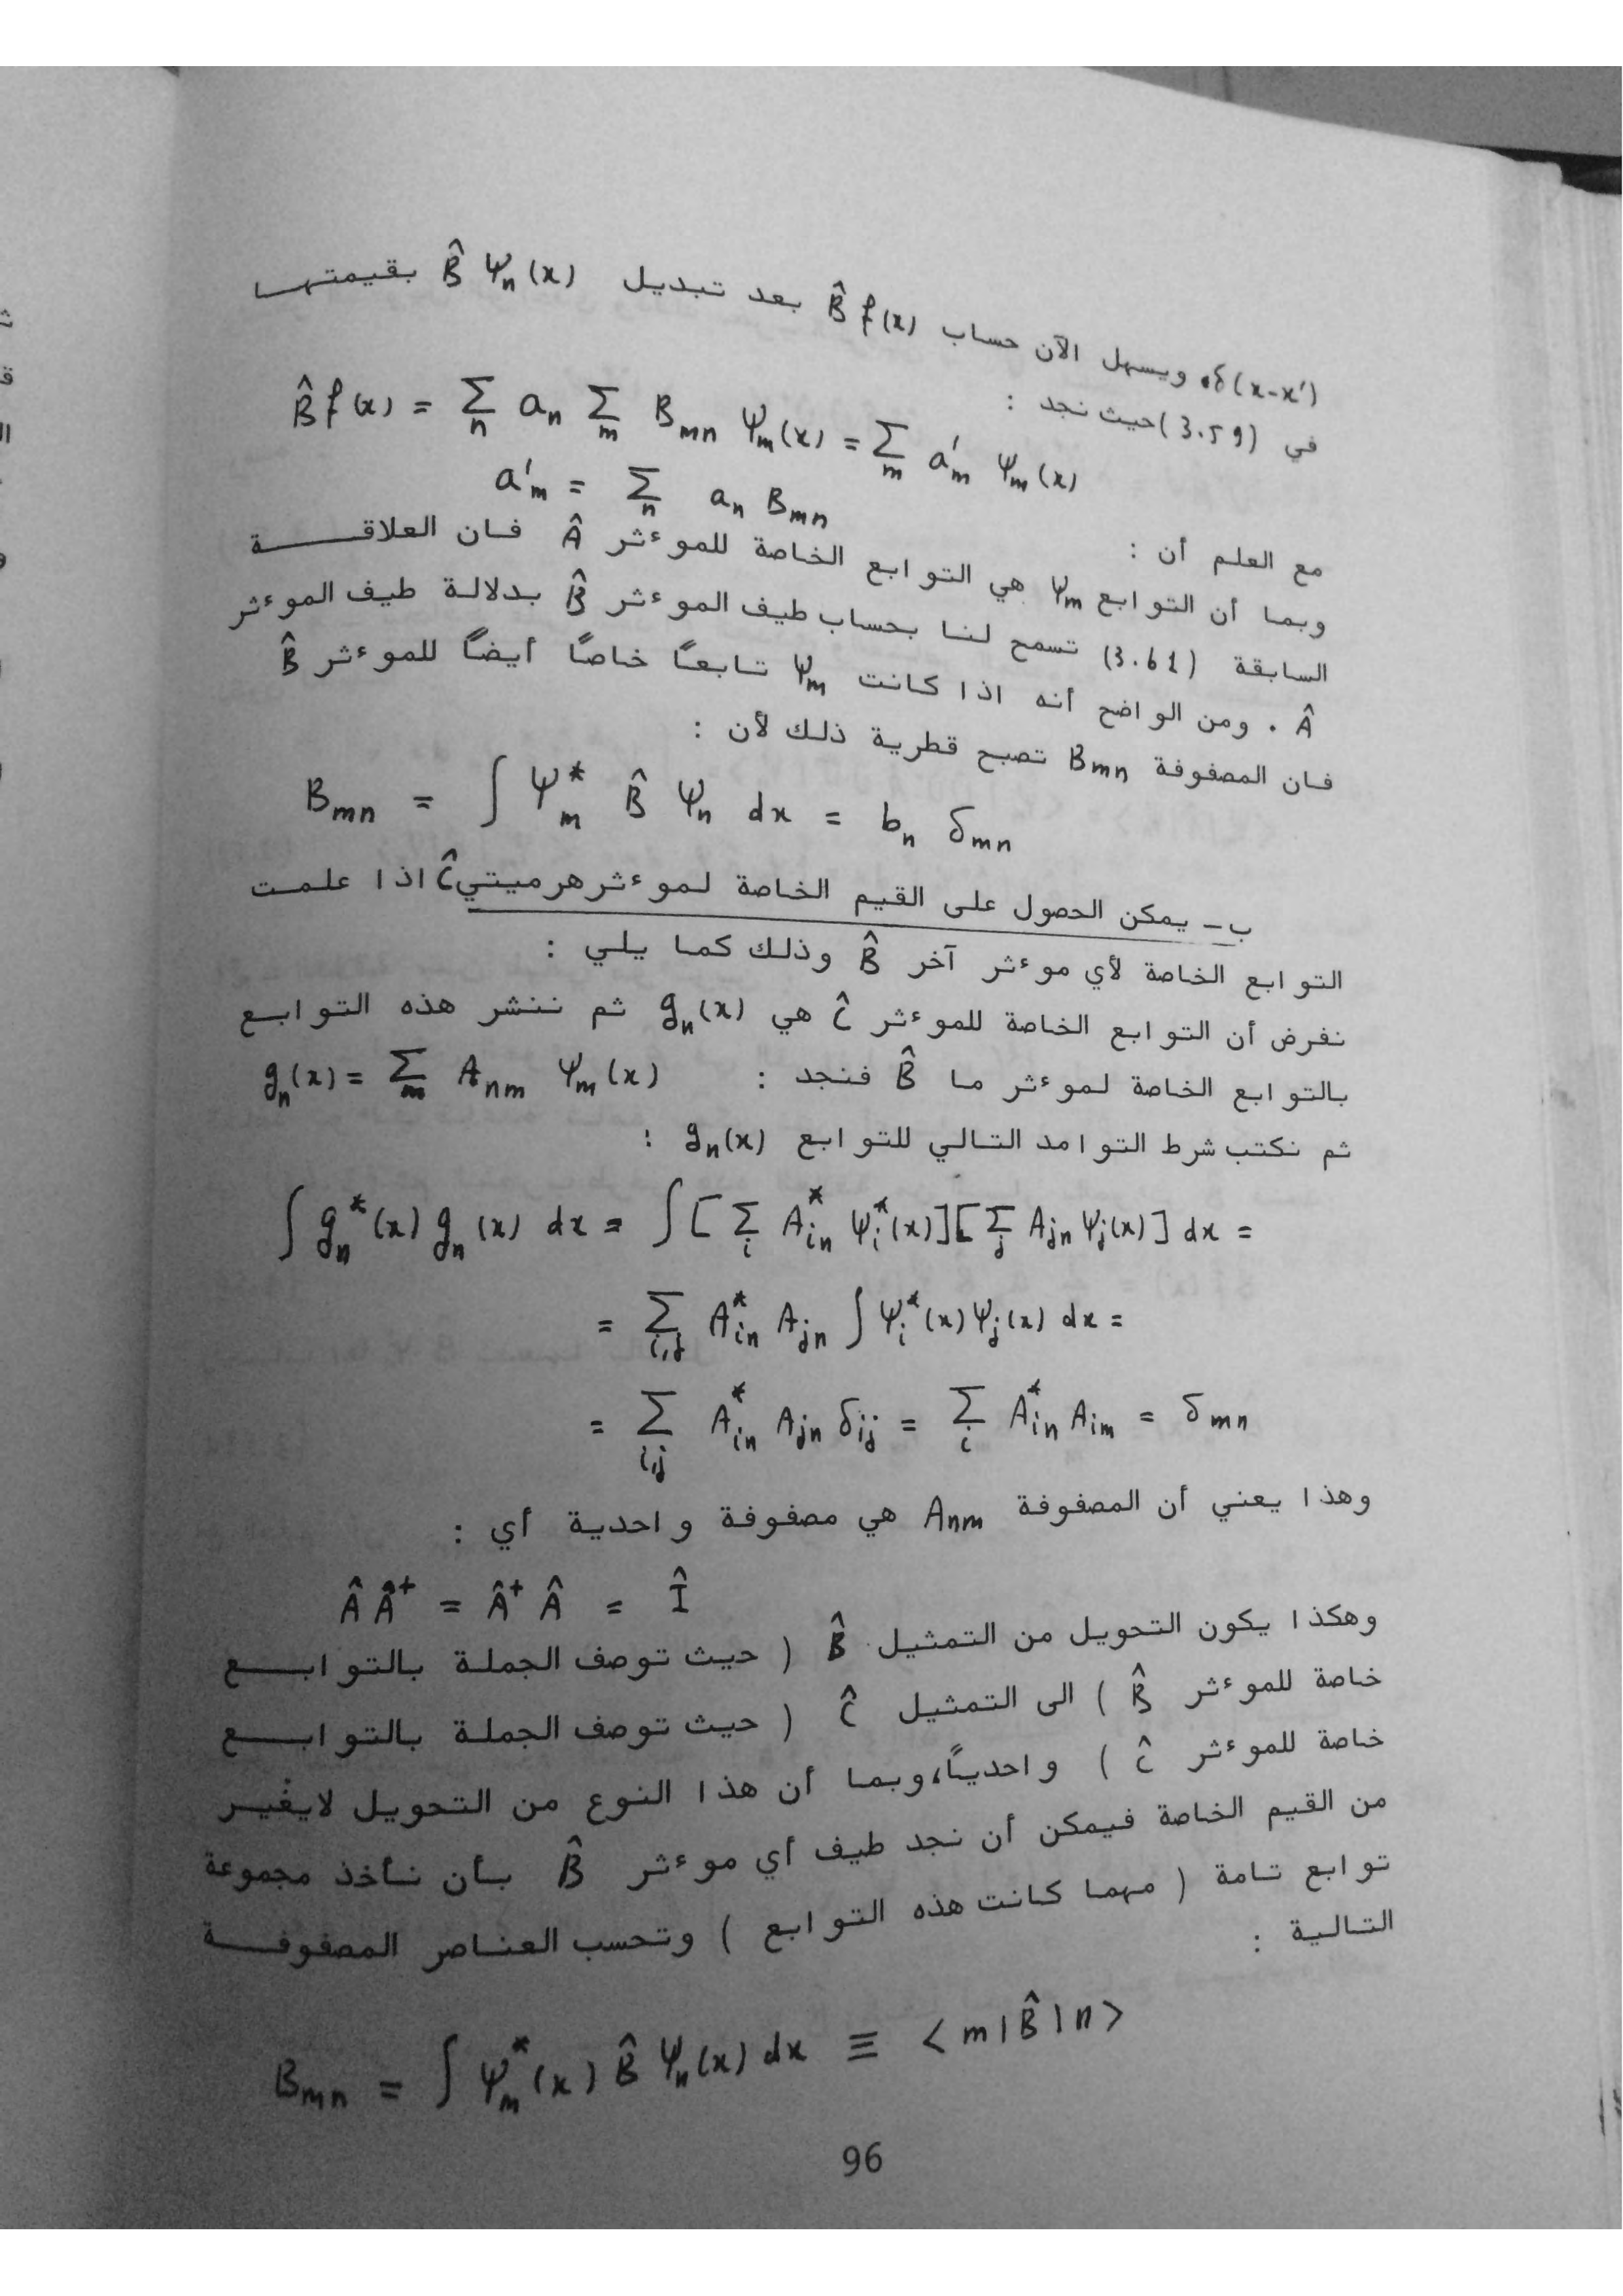 δ(x-x')، ويسهل الآن حساب B̂ f(x) بعد تبديل B̂ Ψn(x) بقيمتها
في (3.59) حيث نجد :
B̂ f(x) = Σn an Σm Bmn Ψm(x) = Σm a'm Ψm(x)
مع العلم أن : a'm = Σn an Bmn
وبما أن التوابع Ψm هي التوابع الخاصة للموءثر Â فان العلاقة
السابقة (3.61) تسمح لنا بحساب طيف الموءثر B̂ بدلالة طيف الموءثر
Â . ومن الواضح أنه اذا كانت Ψm تابعاً خاصاً أيضاً للموءثر B̂
فان المصفوفة Bmn تصبح قطرية ذلك لأن :
Bmn = ∫ Ψ*m B̂ Ψn dx = bn δmn
ب - يمكن الحصول على القيم الخاصة لموءثر هرميتي Ĉ اذا علمت
التوابع الخاصة لأي موءثر آخر B̂ وذلك كما يلي :
نفرض أن التوابع الخاصة للموءثر Ĉ هي gn(x) ثم ننشر هذه التوابع
بالتوابع الخاصة لموءثر ما B̂ فنجد : gn(x) = Σm Anm Ψm(x)
ثم نكتب شرط التوامد التالي للتوابع gn(x) :
∫ gn*(x) gn(x) dx = ∫ [Σi A*in Ψi*(x)][Σj Ajn Ψj(x)] dx =
= Σi,j A*in Ajn ∫ Ψi*(x) Ψj(x) dx =
= Σi,j A*in Ajn δij = Σi A*in Aim = δmn
وهذا يعني أن المصفوفة Anm هي مصفوفة واحدية أي :
Â Â+ = Â+ Â = Î
وهكذا يكون التحويل من التمثيل B̂ ( حيث توصف الجملة بالتوابع
خاصة للموءثر B̂ ) الى التمثيل Ĉ ( حيث توصف الجملة بالتوابع
خاصة للموءثر Ĉ ) واحدياً، وبما أن هذا النوع من التحويل لايغير
من القيم الخاصة فيمكن أن نجد طيف أي موءثر B̂ بأن نأخذ مجموعة
توابع تامة ( مهما كانت هذه التوابع ) وتحسب العناصر المصفوفة
التالية :
Bmn = ∫ Ψm*(x) B̂ Ψn(x) dx ≡ <m|B̂|n>
96